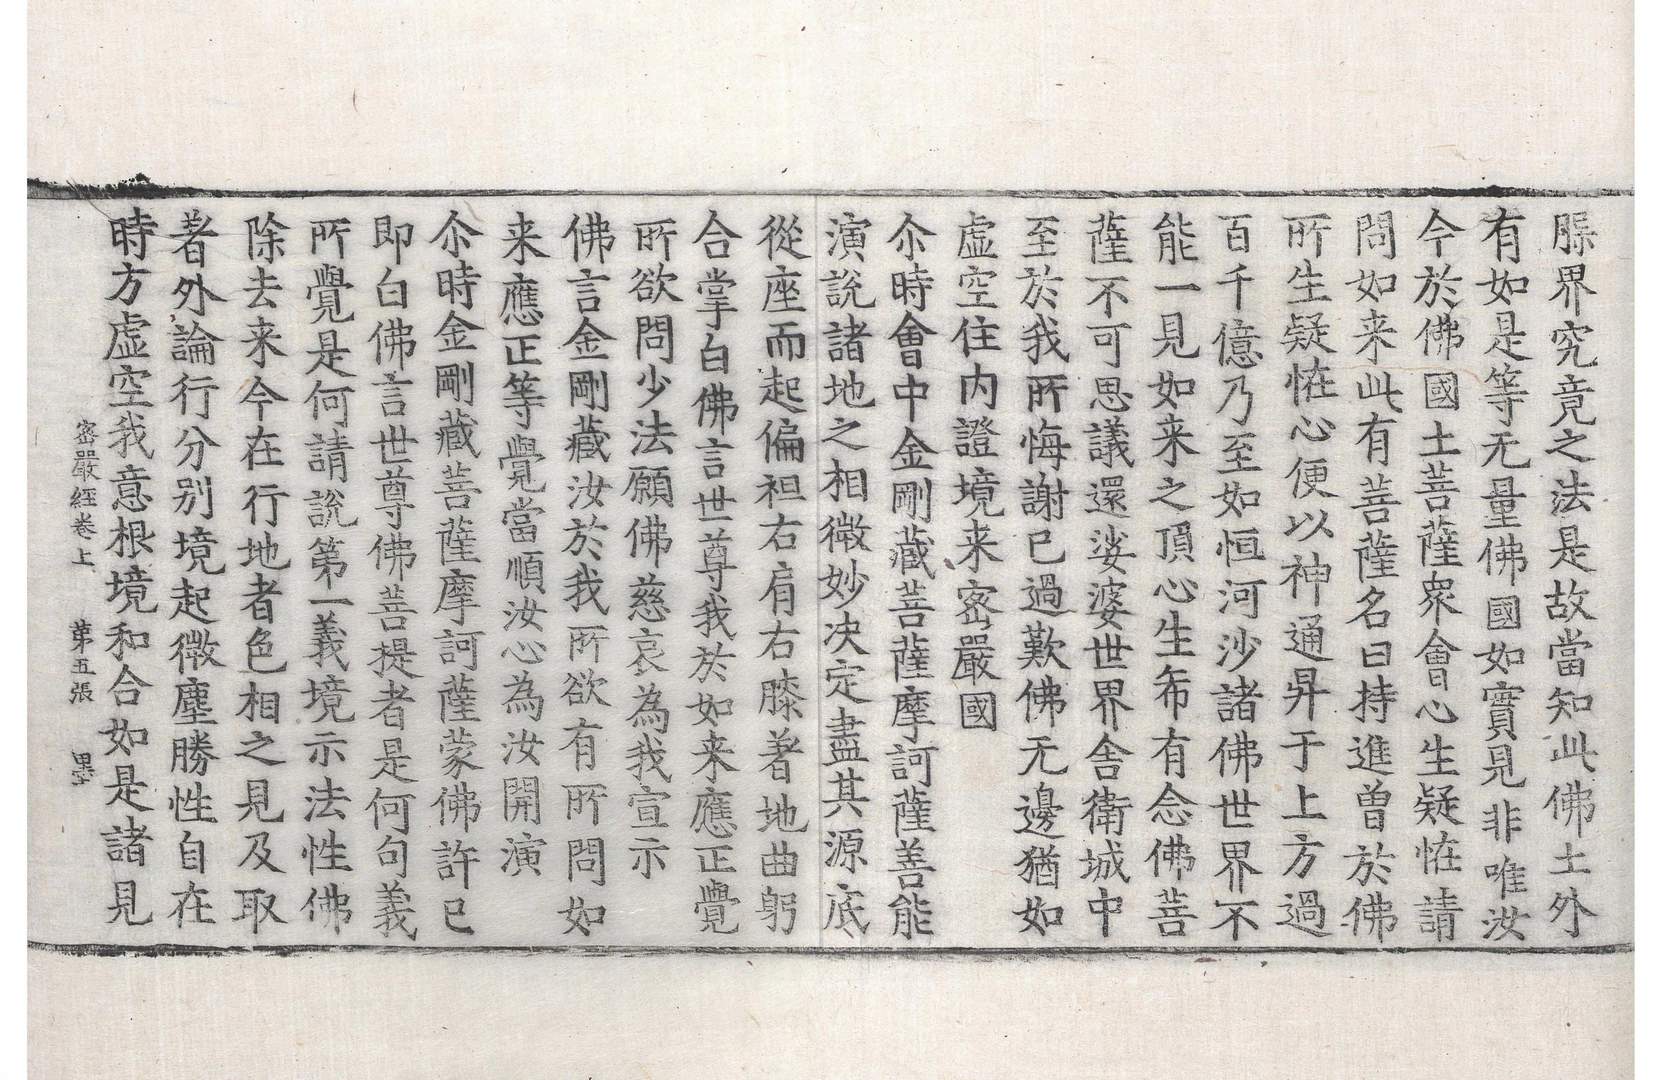 脲界究竟之法是故當知此佛土外
有如是等无量佛國如實見非唯汝
今於佛國土菩薩衆會心生疑恠請
問如来此有菩薩名曰持進曽於佛
所生疑恠心便以神通昇于上方過
百千億乃至如恒河沙諸佛世界不
能一見如来之頂心生希有念佛菩
薩不可思議還娑婆世界舍衛城中
至於我所悔謝已過歎佛无邊猶如
虛空住内證境来宻嚴國
尒時會中金剛藏菩薩摩訶薩善能
演說諸地之相微妙决定盡其源底
從座而起偏袒右肩右膝著地曲躬
合掌白佛言世尊我於如来應正覺
所欲問少法願佛慈哀為我宣示
佛言金剛藏汝於我所欲有所問如
来應正等覺當順汝心為汝開演
尒時金剛藏菩薩摩訶薩蒙佛許已
即白佛言世尊佛菩提者是何句義
所覺是何請說第一義境示法性佛
除去来今在行地者色相之見及取
著外論行分别境起微塵勝性自在
時方虛空我意根境和合如是諸見
宻嚴經卷上 第五張 墨